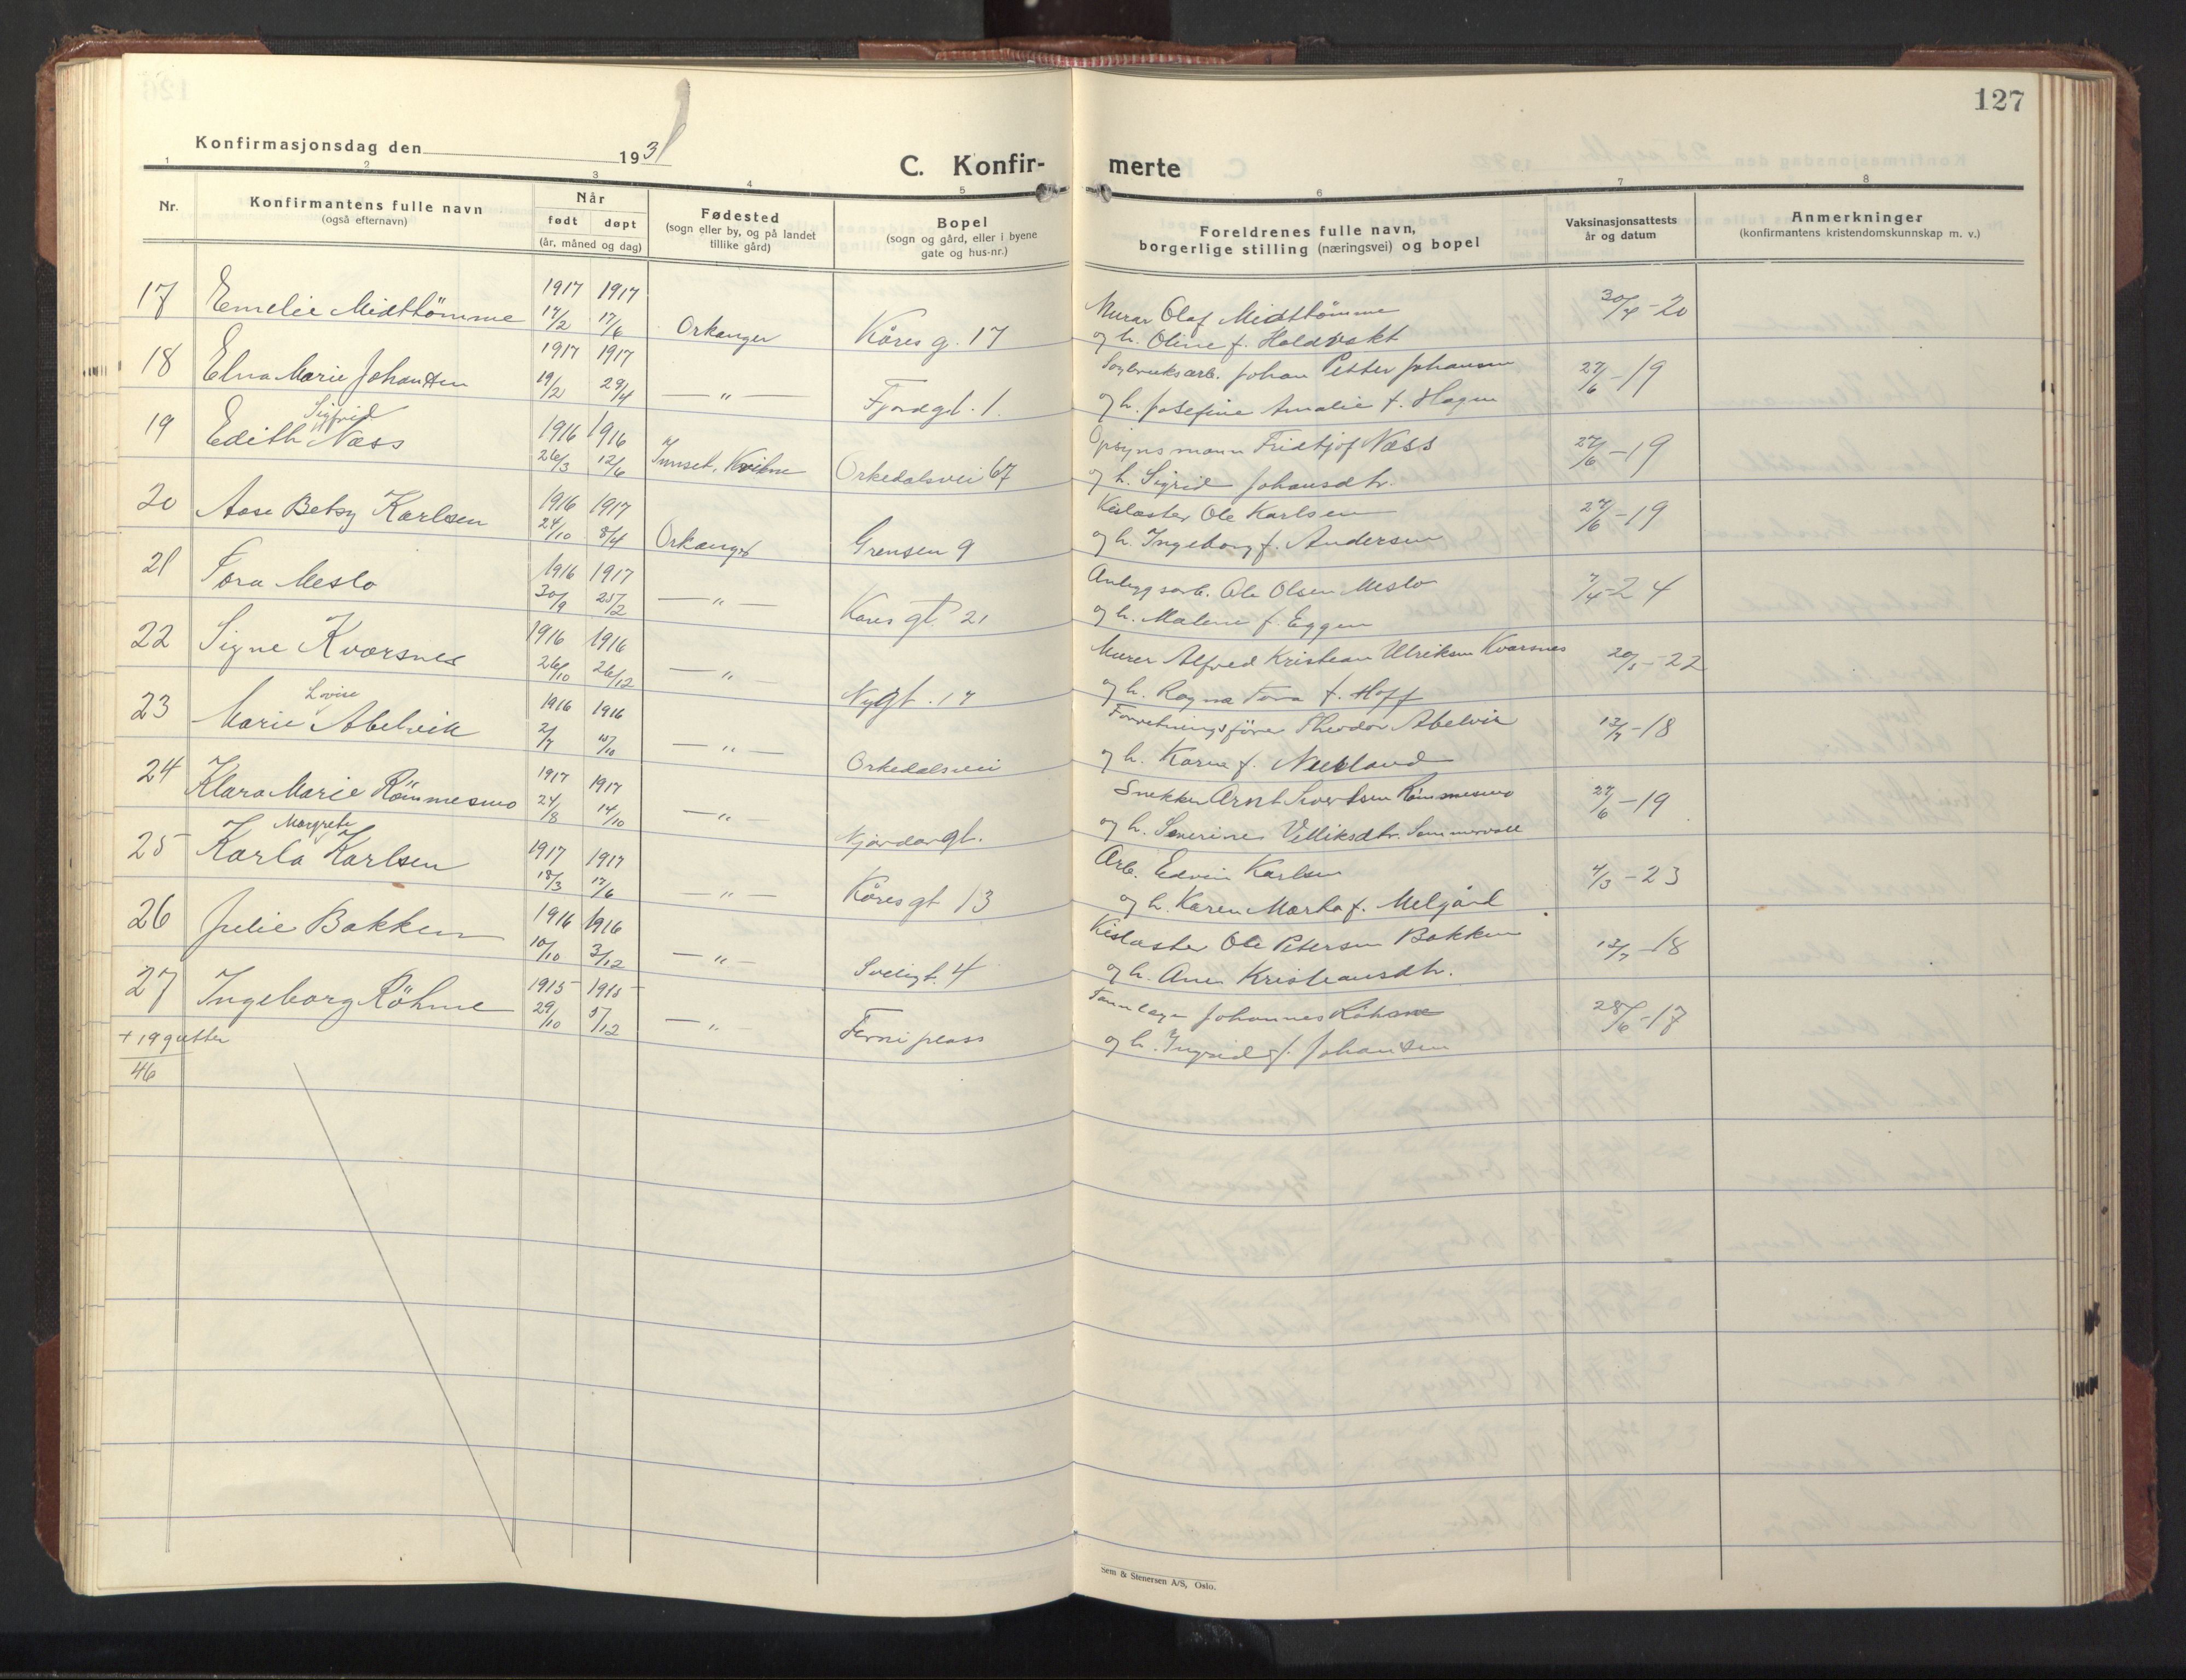 127
Konfirmasjonsdag den 1931
C. Konfir- merte
1 2 3 4 5 6 7 8
Nr.
Konfirmantens fulle navn
(også efternavn)
Når
født døpt
(år, måned og dag)
Fødested
(sogn eller by, og på landet
tillike gård)
Bopel
(sogn og gård, eller i byene
gate og hus-nr.)
Foreldrenes fulle navn,
borgerlige stilling (næringsvei) og bopel
Vaksinasjonsattests
år og datum
Anmerkninger
(konfirmantens kristendomskunnskap m. v.)
17 Emelie Midttömme 1917 14/2 1917 17/6 Orkanger Kåres g. 17 Murar Olaf Midttömme 30/4-20
og h. Oline f. Holdvakt
18 Elna Marie Johansen 1917 19/2 1917 29/4 — " — Fjordgt. 1. Sagbruksarb. Johan Petter Johansen 27/6-19
og h. Josefine Amalie f. Hagen
Sigfrid
19 Edith Næss 1916 26/3 1916 12/6 Innset, Kvikne Orkedalsvei 67 Opsynsmann Fridtjof Næss 27/6-19
og h. Sigrid Johansdtr.
20 Aase Betsy Karlsen 1916 24/10 1917 8/4 Orkanger Grensen 9 Kislaster Ole Karlsen 27/6-19
og h. Ingeborg f. Andersen
21 Tora Meslo 1916 30/9 1917 25/2 — " — Kåres gt. 21 Anleggsarb. Ole Olsen Meslo 7/4-24
og h. Malene f. Eggen
22 Signe Kvarsnes 1916 26/10 1916 26/12 — " — Nygt. 17 Murer Alfred Kristian Ulriksen Kvarsnes 20/5-22
og h. Ragna Tora f. Hoff
Lovise
23 Marie Abelvik 1916 2/7 1916 15/10 — " — Orkedalsvei Forretningsfører Theodor Abelvik 12/7-18
og h. Karen f.
24 Klara Marie Römmesmo 1917 24/8 1917 14/10 — " — Njardargt. Snekker Arnt Sivertsen Römmesmo 27/6-19
og h. Severine
Margrete
25 Karla Karlsen 1917 18/3 1917 17/6 — " — Kåresgt 13 Arb. Edvin Karlsen 4/3-23
og h. Karen Marta f. Melgård
26 Julie Bakken 1916 10/10 1916 3/12 — " — Sveeigt. 4 Kislaster Ole Petersen Bakken 12/7-18
og h. Ane Kristiansdtr.
27 Ingeborg Röhme 1915 29/10 1915 5/12 — " — plass Tannlege Johannes Röhme 28/6-17
og h. Ingrid f. Johansen
+ 19 gutter
46
Sem & Stenersen A/S, Oslo.